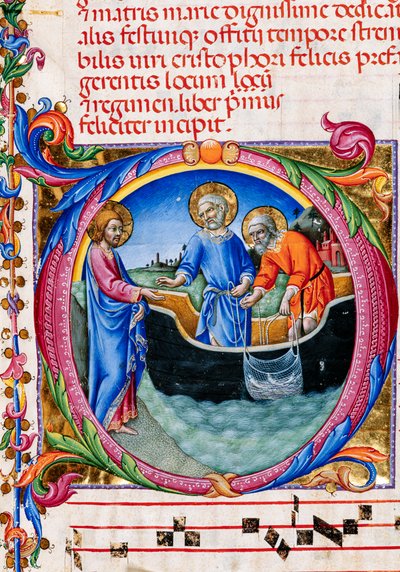 ⁊ matris marie dignissime dedicat
alis festiuiqꝫ offitij tempore stren
bilis uiri cristophori felicis pref
gerentis locum
⁊ regimen. liber p̄mus
feliciter incipit.